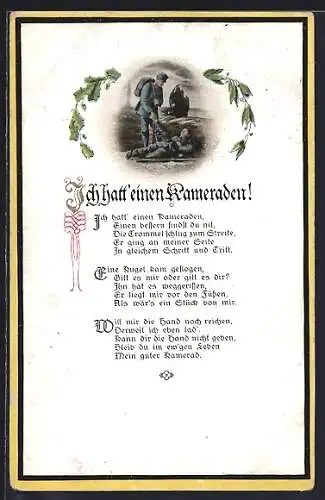 Ich hatt' einen Kameraden!
Ich hatt' einen Kameraden,
Einen bessern findst du nit,
Die Trommel schlug zum Streite,
Er ging an meiner Seite
In gleichem Schritt und Tritt.
Eine Kugel kam geflogen,
Gilt es mir oder gilt es dir?
Ihn hat es weggerissen,
Er liegt mir vor den Füßen,
Als wär's ein Stück von mir.
Will mir die Hand noch reichen,
Derweil ich eben lad'.
Kann dir die Hand nicht geben,
Bleib du im ew'gen Leben
Mein guter Kamerad.